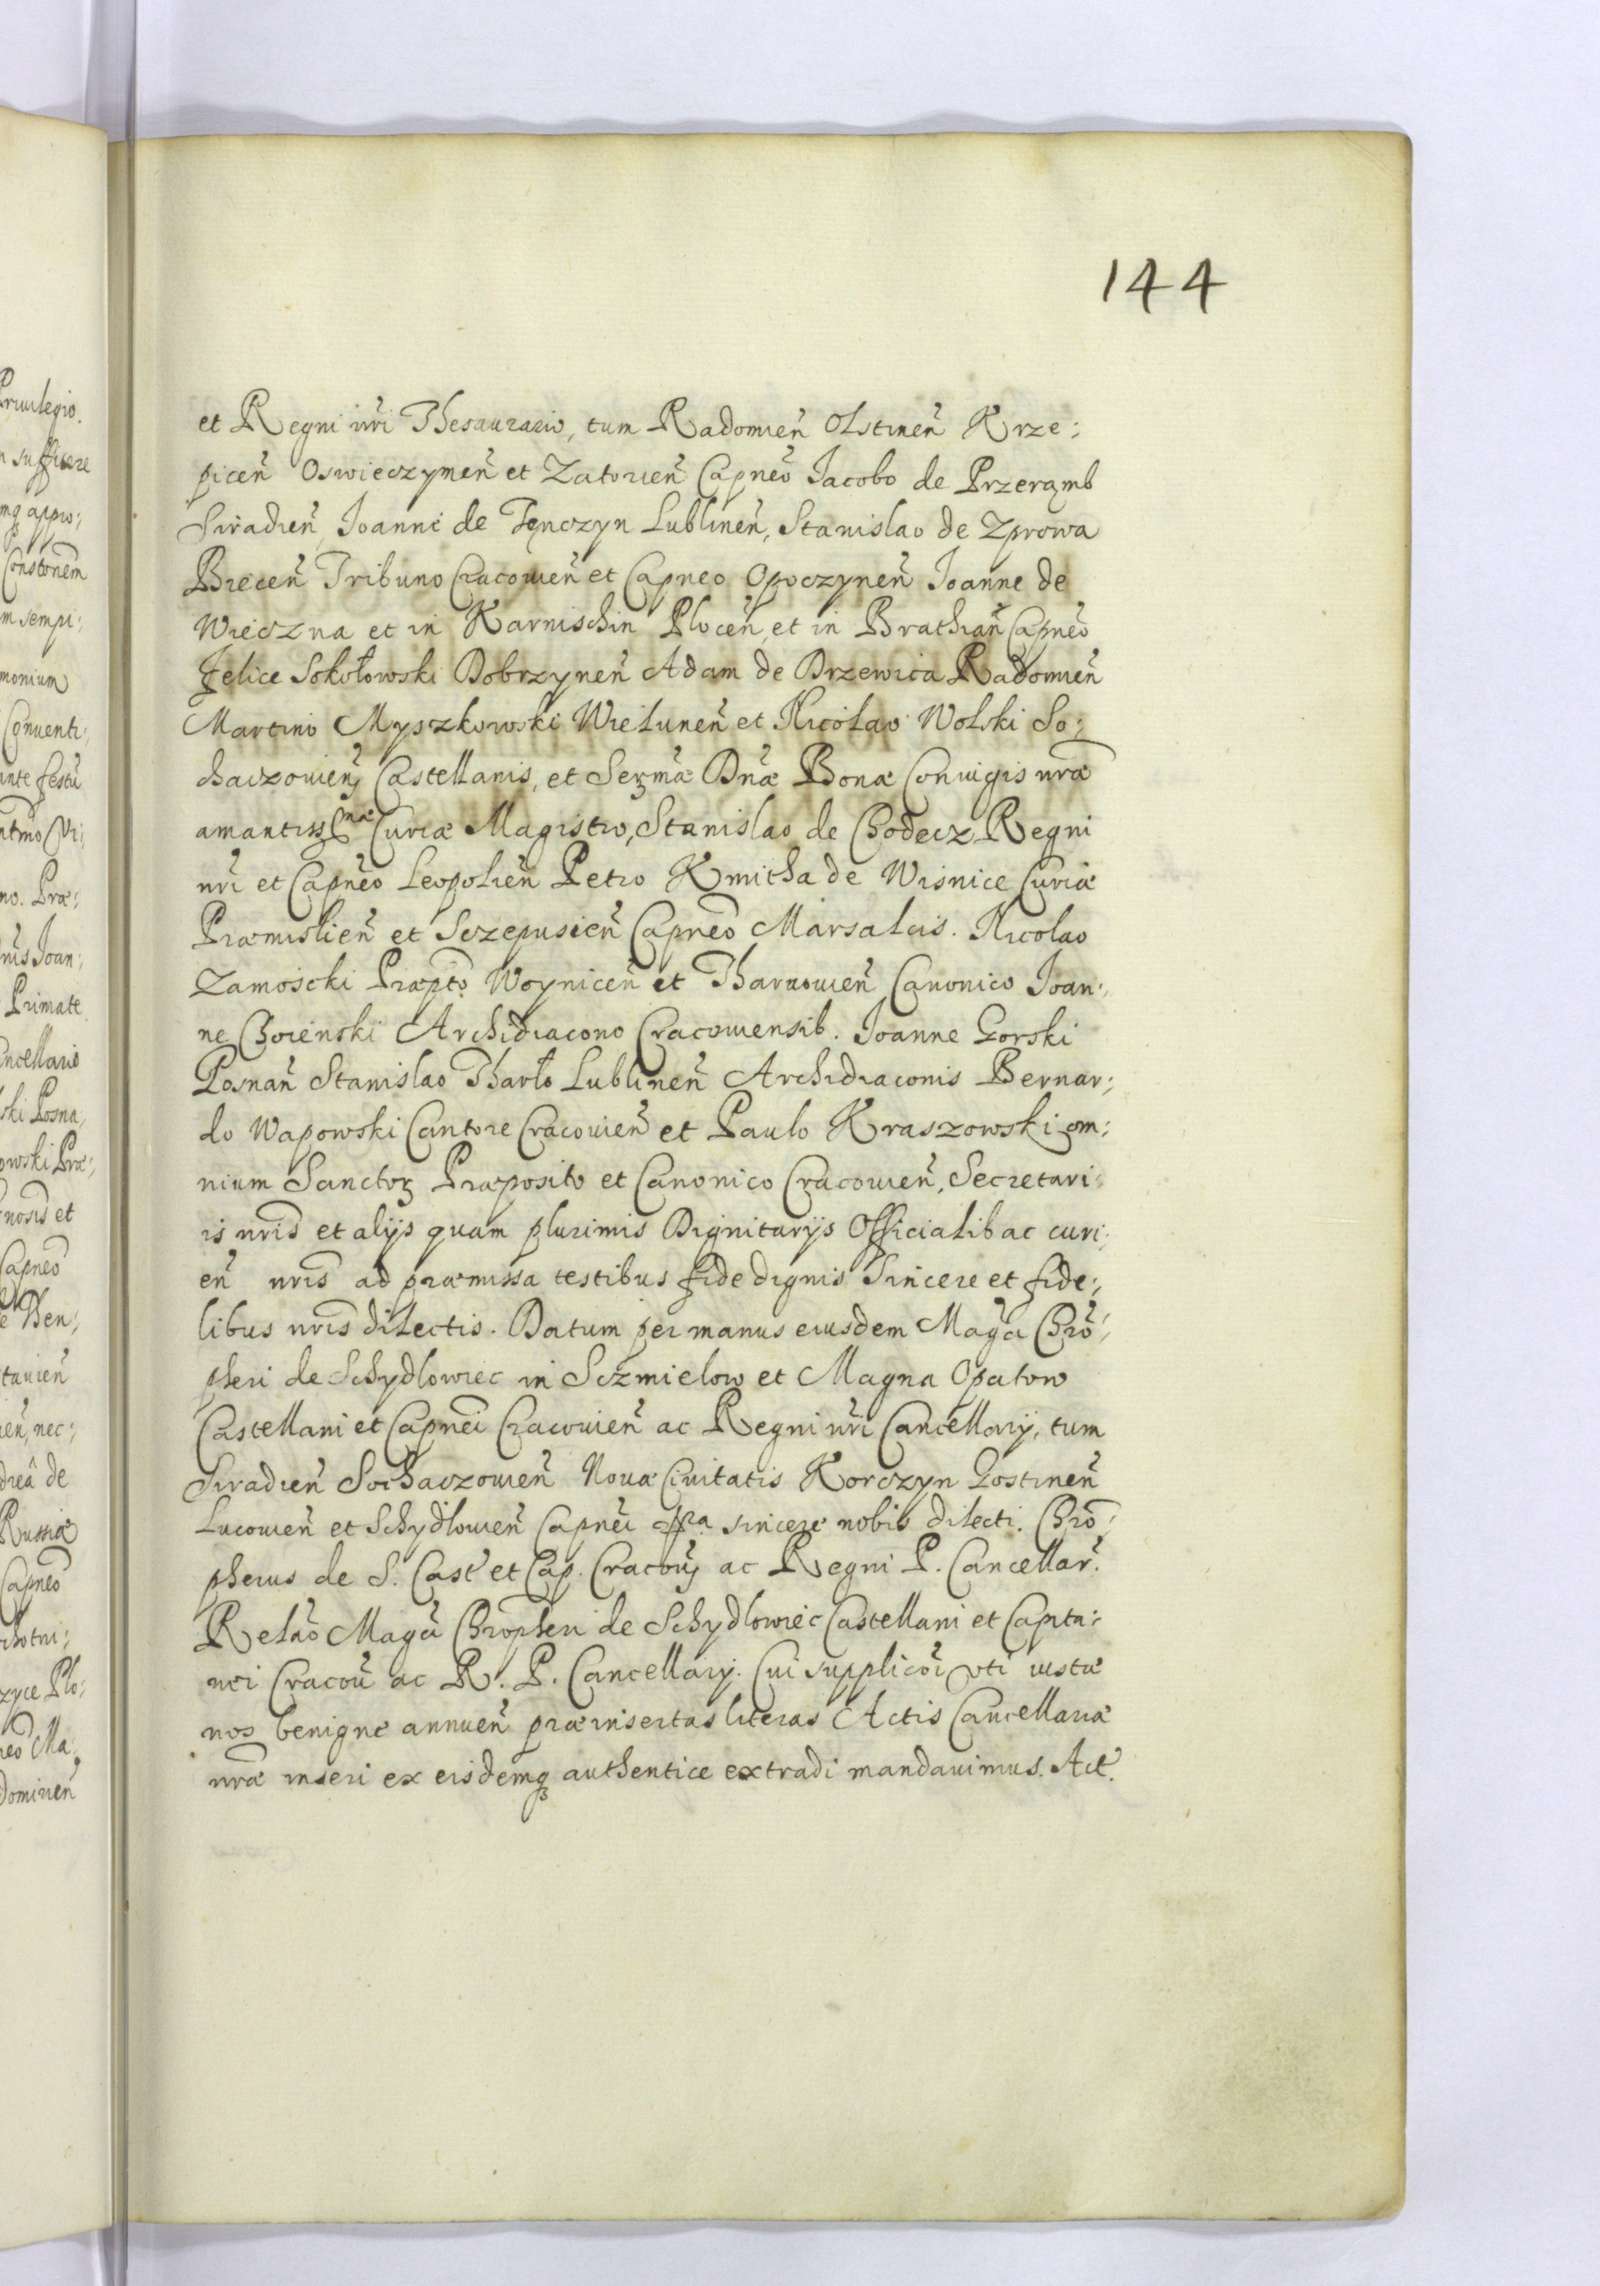 144
et Regni nri Thesaurario, tum Radomien̄ Olstinen̄ Krze:
picen̄ Oswieczymen̄ et Zatorien̄ Capneo Iacobo de Przeramb
Siradien̄ Ioanne de Tęnczyn Lublinen̄, Stanislao de Zprowa
Biecen̄ Tribuno Cracouien̄ et Capneo Opoczynen̄ Ioanne de
Wieczna et in Karnischin Plocen̄, et in Brathian̄ Capneo
Felice Sokołowski Dobrzynen̄ Adam de Drzewica Radomien̄
Martino Myszkowski Wielunen̄ et Nicolao Wolski So:
chaczouien̄ Castellanis, et Sermæ Dnæ Bonæ Coniugis nræ
amantissmæ Curiæ Magistro, Stanislao de Chodecz Regni
nri et Capneo Leopolien̄ Petro Kmitha de Wisnice Curiæ
Præmislien̄ et Sczepusien̄ Capneo Marsalcis. Nicolao
Zamoscki Præpto Woynicen̄ et Tharnouien̄ Canonico Ioan:
ne Choienski Archidiacono Cracouiensib. Ioanne Gorski
Posnan̄ Stanislao Tharło Lublinen̄ Archidiaconis Bernar:
do Wapowski Cantore Cracouien̄ et Paulo Kraszowski om:
nium Sanctoꝝ Præposito et Canonico Cracouien̄, Secretari:
is nris et alijs quam plurimis Dignitarijs Officialib ac curi:
en̄ nris ad præmissa testibus fide dignis Sincere et fide:
libus nris dilectis. Datum per manus eiusdem Magci Chro:
pheri de Schydlowiec in Sczmielow et Magna Opatow
Castellani et Capnei Cracouien̄ ac Regni nri Cancellarij, tum
Siradien̄ Sochaczouien̄ Nouæ Ciuitatis Korczyn Gostinen̄
Lucouien̄ et Schydlouien̄ Capnei sincere nobis dilecti. Chro:
pherus de S. Cast et Cap. Cracouien̄ ac Regni P. Cancellar.
Relao Magci Chropheri de Schydlowiec Castellani et Capita:
nei Cracou ac R. P. Cancellarij. Cui supplicoi vti iustæ
nos benigne annuen̄ præinsertas literas Actis Cancellariæ
nræ inseri ex eisdemq̧ authentice extradi mandauimus. Act.